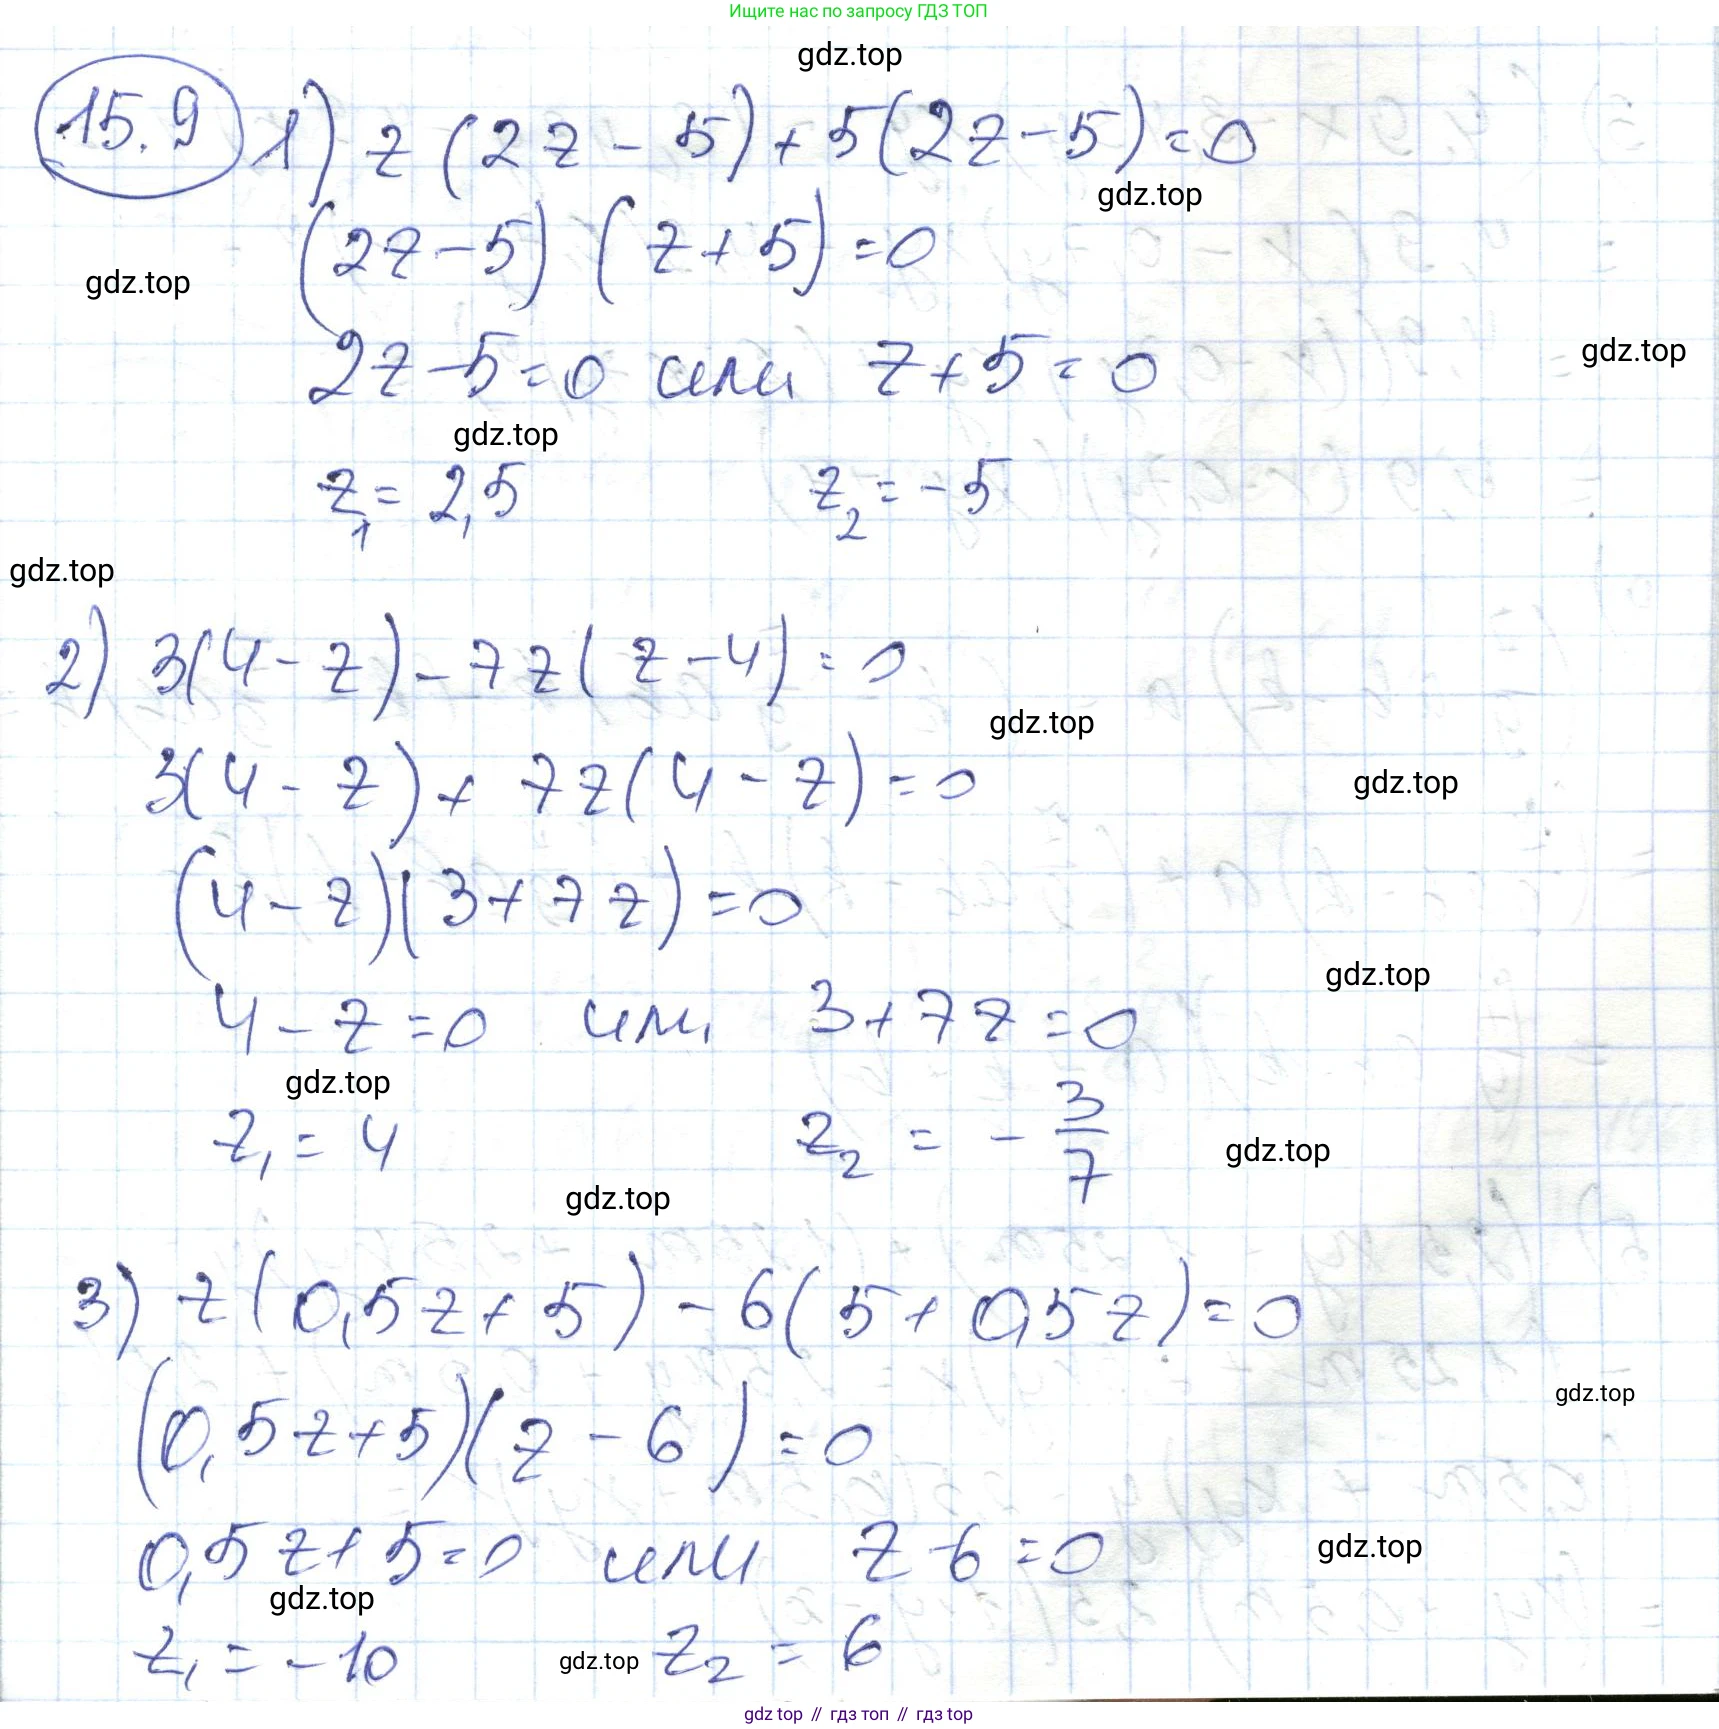 Ищите нас по запросу ГДЗ ТОП
gdz.top
15.9 1) z(2z - 5) + 5(2z - 5) = 0
gdz.top
(2z - 5) (z + 5) = 0
gdz.top
2z - 5 = 0 или z + 5 = 0
gdz.top
gdz.top
z₁ = 2,5 z₂ = -5
gdz.top
2) 3(4 - z) - 7z(z - 4) = 0
gdz.top
3(4 - z) + 7z(4 - z) = 0
gdz.top
(4 - z)(3 + 7z) = 0
gdz.top
4 - z = 0 или 3 + 7z = 0
gdz.top
z₁ = 4 z₂ = - 3/7
gdz.top
gdz.top
3) z(0,5z + 5) - 6(5 + 0,5z) = 0
gdz.top
(0,5z + 5)(z - 6) = 0
0,5z + 5 = 0 или z - 6 = 0
gdz.top
gdz.top
z₁ = -10 z₂ = 6
gdz.top
gdz top // гдз топ // гдз top